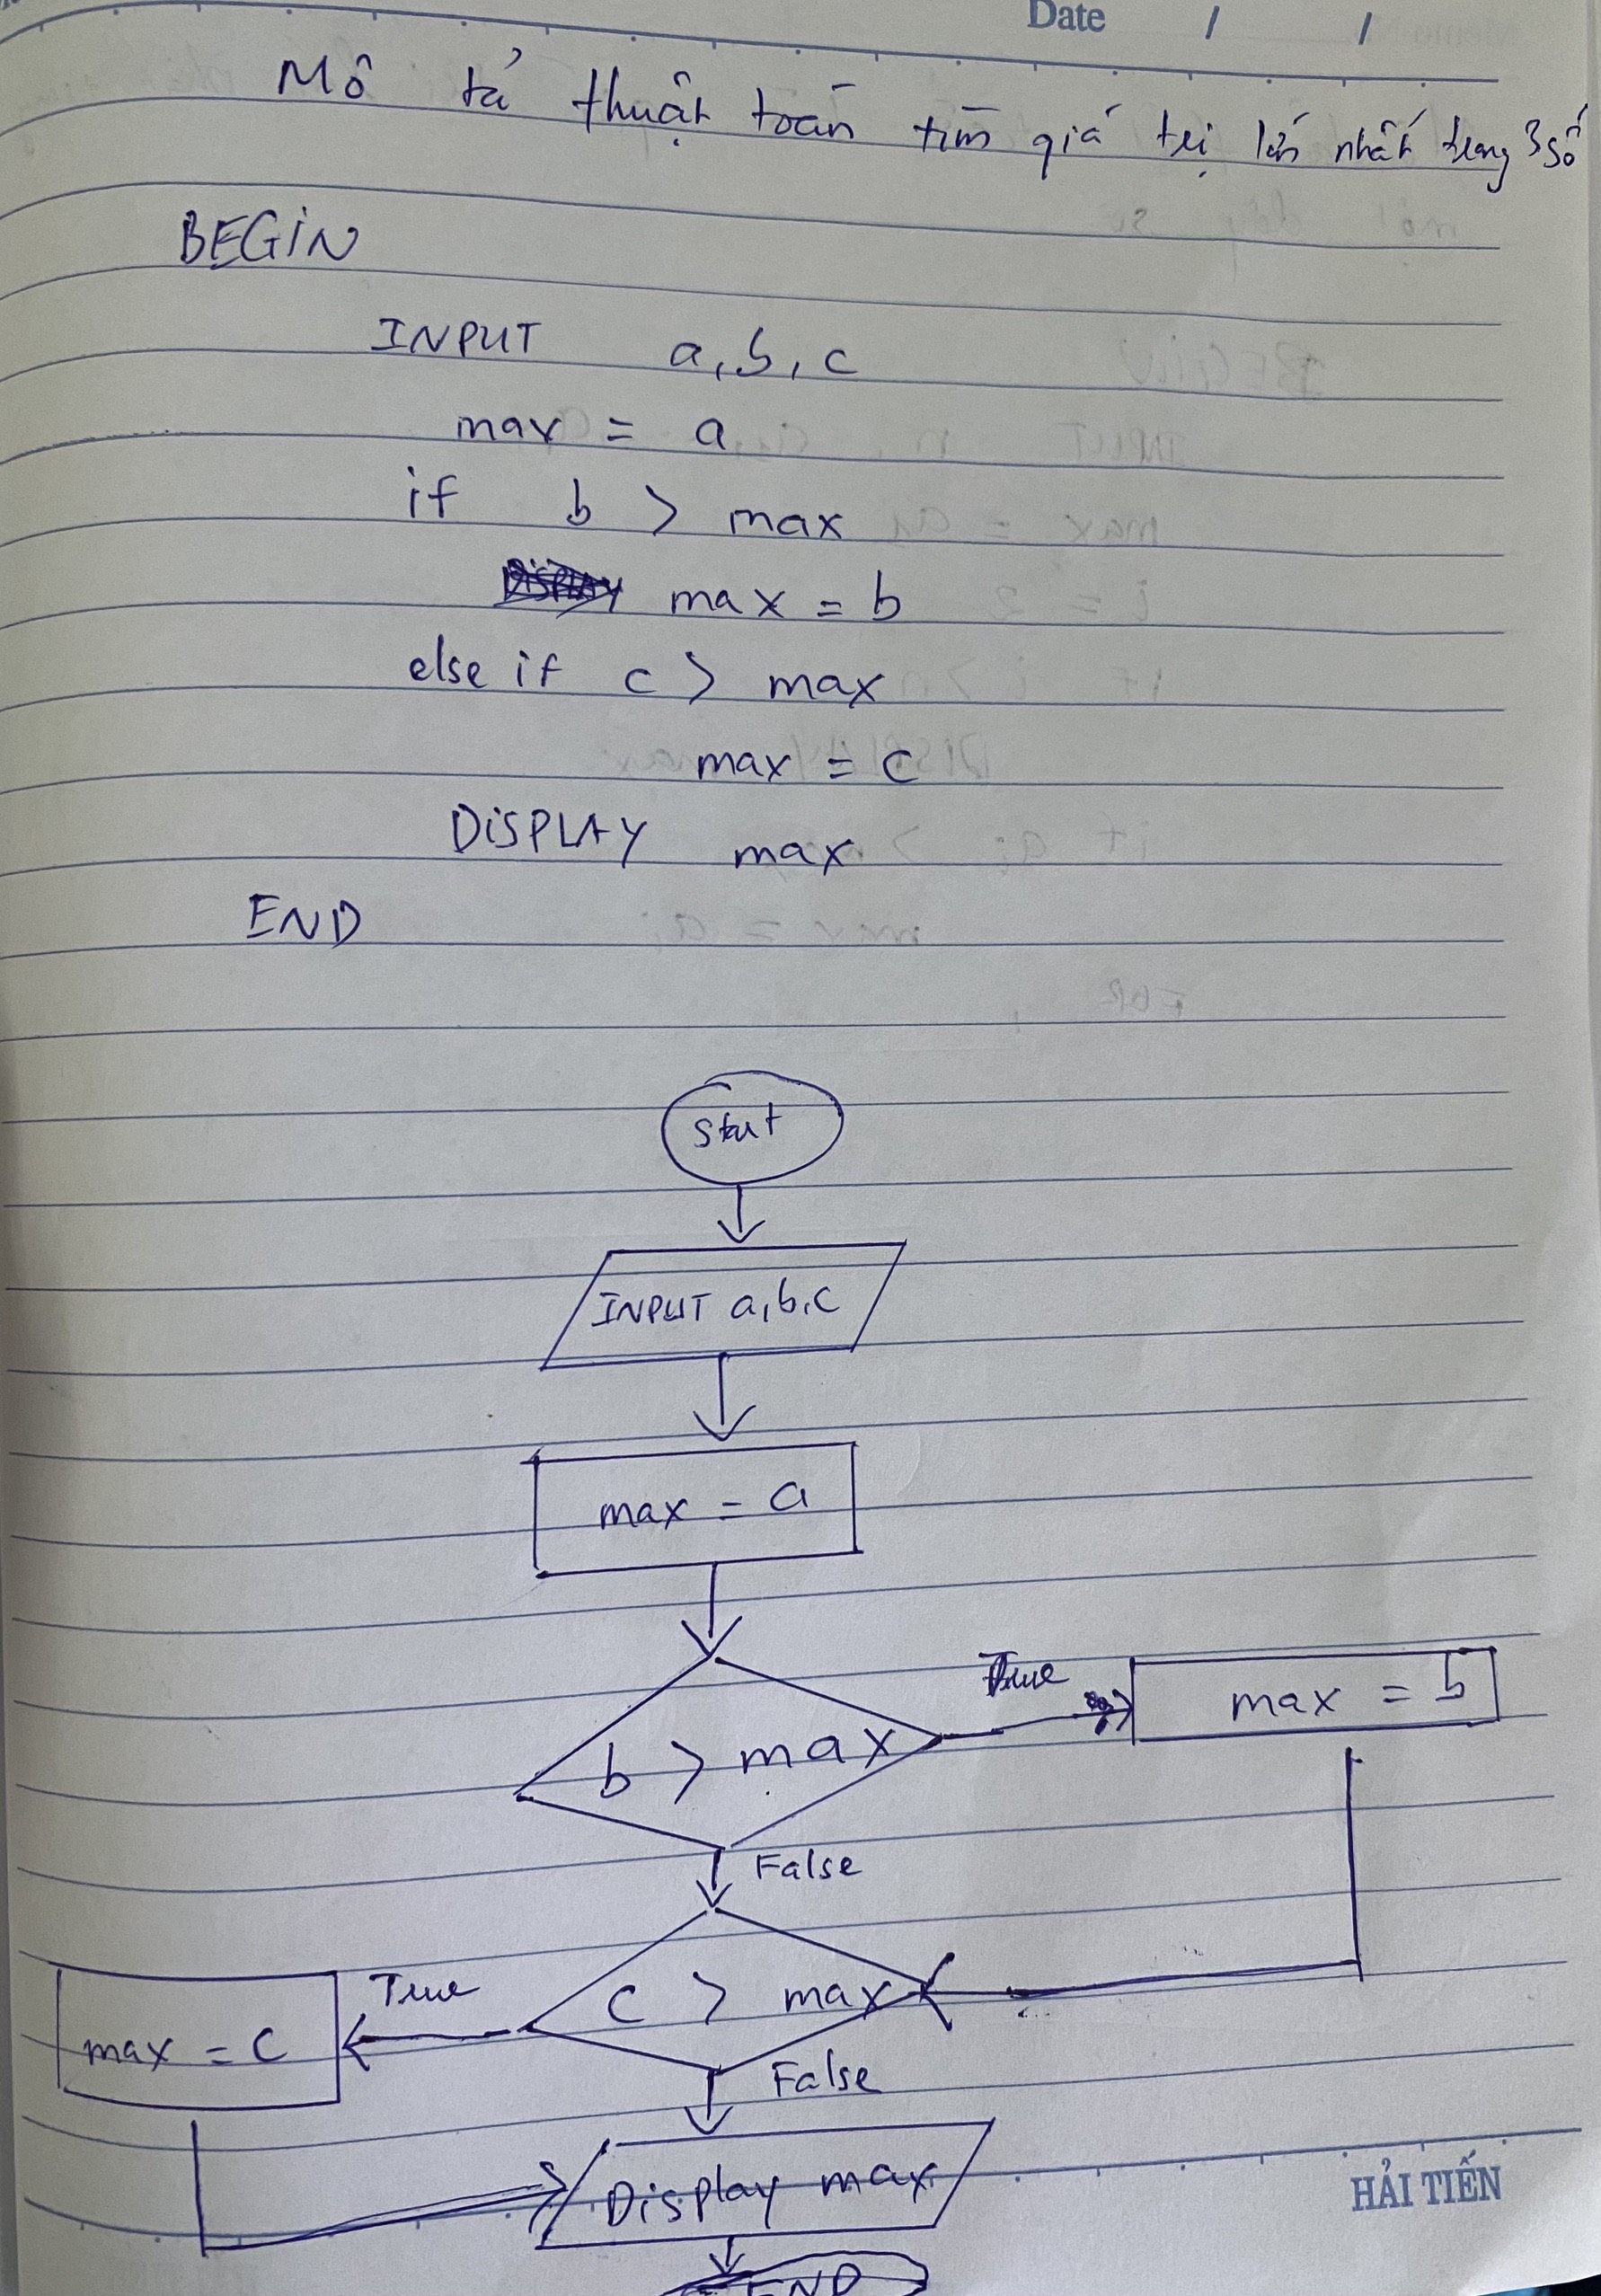 Date / /
Mô tả thuật toán tìm giá trị lớn nhất trong 3 số
BEGIN
INPUT a, b, c
max = a
if b > max
max = b
else if c > max
max = c
DISPLAY max
END
Start
INPUT a, b, c
max = a
True
max = b
b > max
False
True
c > max
max = c
False
Display max
HẢI TIẾN
END